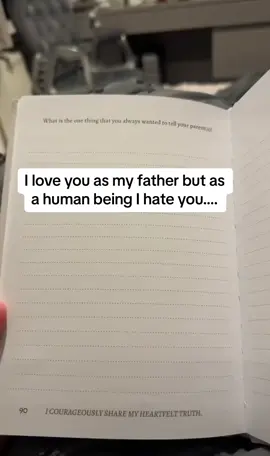 What is the one thing that you always wanted to tell your parent(s)?
I love you as my father but as
a human being I hate you....
90
I COURAGEOUSLY SHARE MY HEARTFELT TRUTH.